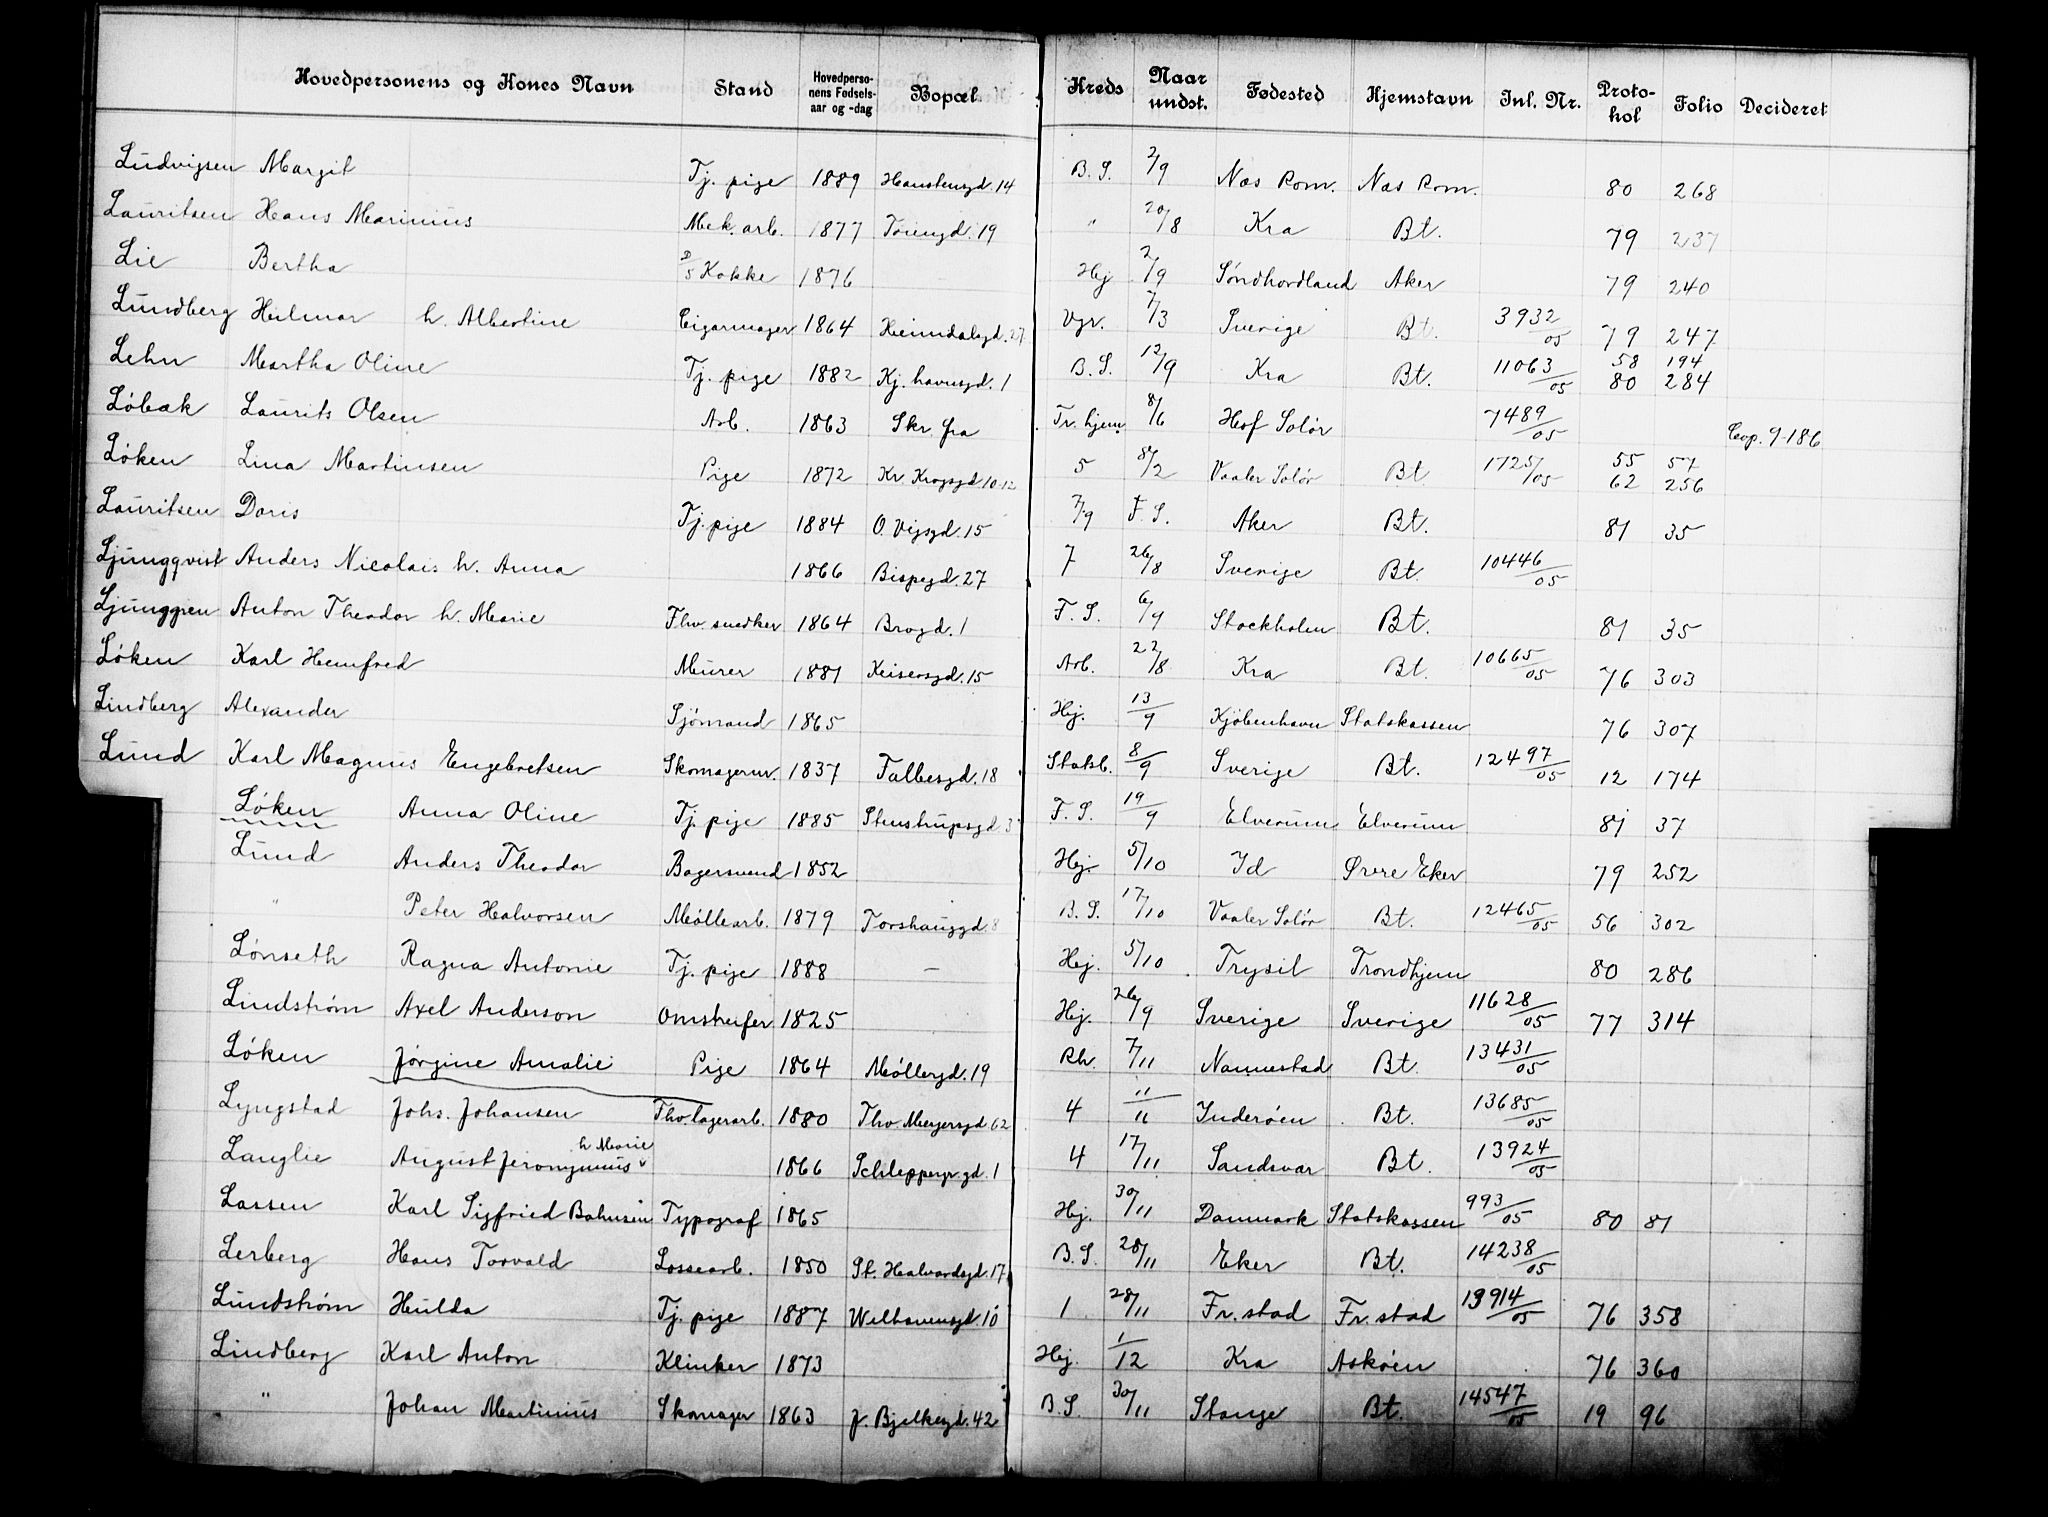 Hovedpersonens og Kones Navn Stand Hovedpersonens Fødselsaar og -dag Bopæl. Kreds Naar undst. Fødested Hjemstavn Inl. Nr. Protokol Folio Decideret
Ludvigsen Margit Tj. pige 1889 Haustensgd. 14 B. S. 2/9 Nas Rom. Nas Rom. 80 268
Lauritsen Hans Marinius Mek. arb. 1877 Töiengd. 19 " 20/8 Kra Bt. 79 237
Lie Bertha Kokke 1876 Hej 2/9 Söndhordland Aker 79 240
Lundberg Hilmar h. Albertine Cigarmager 1864 Heimdalsgd. 27 Vgr. 7/3 Sverige Bt. 3932/05 79 247
Lehn Martha Oline Tj. pige 1882 Kj. havnsgd. 1 B. S. 12/9 Kra Bt. 11063/05 58 194 80 284
Löbak Laurits Olsen Arb. 1863 Skr. fra Tr. hjem 8/6 Hof Solör 7489/05 Cop. 9-186
Löken Lina Martinsen Pige 1872 Kr. Krogsgd 10-12 5 8/2 Vaaler Solör Bt. 1725/05 55 57 62 256
Lauritsen Doris Tj. pige 1884 O. Vejsgd. 15 7/9 F. S. Aker Bt. 81 35
Ljungqvist Anders Nicolais h. Anna 1866 Bispegd. 27 7 26/8 Sverige Bt. 10446/05
Ljunggren Anton Theodor h. Marie Fhv. snedker 1864 Brogd. 1 F. S. 6/9 Stockholm Bt. 81 35
Löken Karl Hemfred Murer 1881 Keisersgd. 15 Arb. 22/8 Kra Bt. 10665/05 76 303
Lindberg Alexander Sjömand 1865 Hej. 13/9 Kjöbenhavn Statskassen 76 307
Lund Karl Magnus Engebretsen Skomagerm. 1837 Falbesgd. 18 Statsb. 8/9 Sverige Bt. 12497/05 12 174
Löken Anna Oline Tj. pige 1885 Stenstrupsgd 3 F. S. 19/9 Elverum Elverum 81 37
Lund Anders Theodor Bagersvend 1852 Hej. 5/10 Id Övre Eker 79 252
" Peter Halvorsen Möllearb. 1879 Torshauggd. 8 B. S. 17/10 Vaaler Solör Bt. 12465/05 56 302
Lönseth Ragna Antonie Tj. pige 1888 — Hej. 5/10 Trysil Trondhjem 80 286
Lindström Axel Anderson Omstreifer 1825 Hej. 26/9 Sverige Sverige 11628/05 77 314
Löken Jörgine Amalie Pige 1864 Möllergd. 19 Rh. 7/11 Nannestad Bt. 13431/05
Lyngstad Johs. Johansen Fhv. lagerarb. 1880 Thv. Meyersgd 62 4 11/11 Inderöen Bt. 13685/05
Langlie August Jeronymus h Marie 1866 Schleppegr. gd. 1 4 17/11 Sandsvar Bt. 13924/05
Lassen Karl Sigfried Bahnsen Typograf 1865 Hej. 30/11 Danmark Statskassen 993/05 80 81
Lerberg Hans Torvald Lossearb. 1850 St. Halvardsgd. 17 B. S. 28/11 Eker Bt. 14238/05
Lundström Hulda Tj. pige 1887 Welhavensgd. 10 1 28/11 Fr. stad Fr. stad 13914/05 76 358
Lindberg Karl Anton Klinker 1873 Hej. 1/12 Kra Asköen 76 360
" Johan Martinius Skomager 1863 J. Bjelkesgd. 42 B. S. 30/11 Stange Bt. 14547/05 19 96